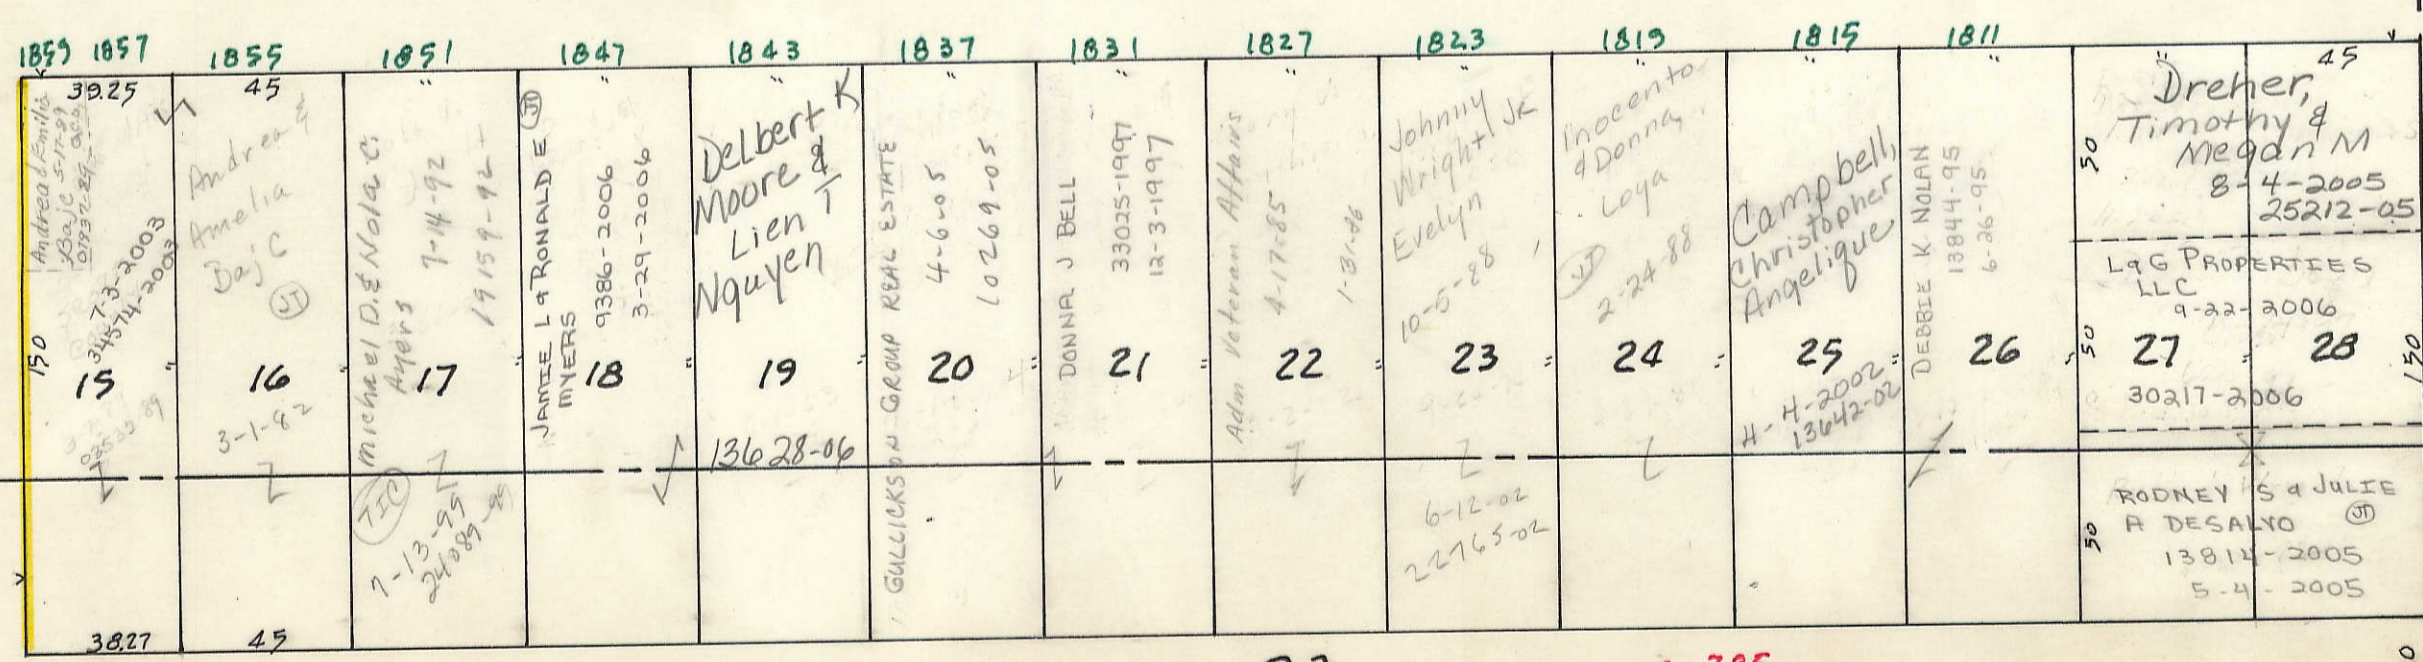 1859 1857
1855
1851
1847
1843
1837
1831
1827
1823
1819
1815
1811
39.25
45
"
"
"
"
"
"
"
"
"
"
"
45
Andrea & Emilia
Baje 5-17-89
01937-89
7-3-2003
34574-2003
150
15
"
38.27
Andrea &
Amelia
Baj C
JT
16
"
3-1-82
45
Michael D. & Nola C.
Ayers
7-14-92
19159-92
17
"
TIC
7-13-99
24089-99
JAMIE L & RONALD E JT
MYERS
9386-2006
3-29-2006
18
"
Delbert K
Moore &
Lien T
Nguyen
19
"
13628-06
GULLICKSON GROUP REAL ESTATE
4-6-05
10269-05
20
"
DONNA J BELL
33025-1997
12-3-1997
21
"
Adm Veteran Affairs
4-17-85
1-31-86
22
"
Johnny
Wright Jr
Evelyn
10-5-88
23
"
6-12-02
22765-02
Inocento
& Donna
Loya
JT
2-24-88
24
"
Campbell,
Christopher
Angelique
25
"
4-4-2002
13642-02
DEBBIE K NOLAN
13844-95
6-26-95
26
"
Dreher,
Timothy &
Megan M
8-4-2005
25212-05
50
L & G PROPERTIES
LLC
9-22-2006
50
27
"
28
150
30217-2006
RODNEY S & JULIE
A DESALVO JT
50
13814-2005
5-4-2005